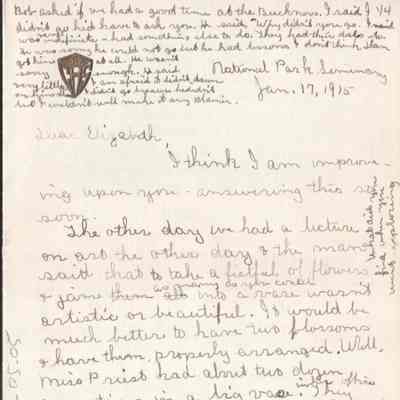 Bob asked if we had a good time at the Buckners. I said I
didn't go he'd have to ask you. He said "Why didn't you go. I said
was - had something else to do. They had this date so
was sorry he could not go but he had lessons I don't think Stan
got him at all. He wasn't
sorry enough. He said
very little I am afraid
didn't go because he didn't
but I wouldn't will make it any
National Park Seminary
Jan. 17, 1915
Dear Elizabeth,
I think I am improv-
ing upon you - answering this so
soon.
The other day we had a lecture
on art the other day & the man
said that to take a fistful of flowers
& jamb them as many as you could into a vase wasn't
artistic or beautiful. It would be
much better to have two blossoms
& have them properly arranged. Well.
Miss Priest had about two dozen
in a big vase. They
What did you
find when you
went exploring